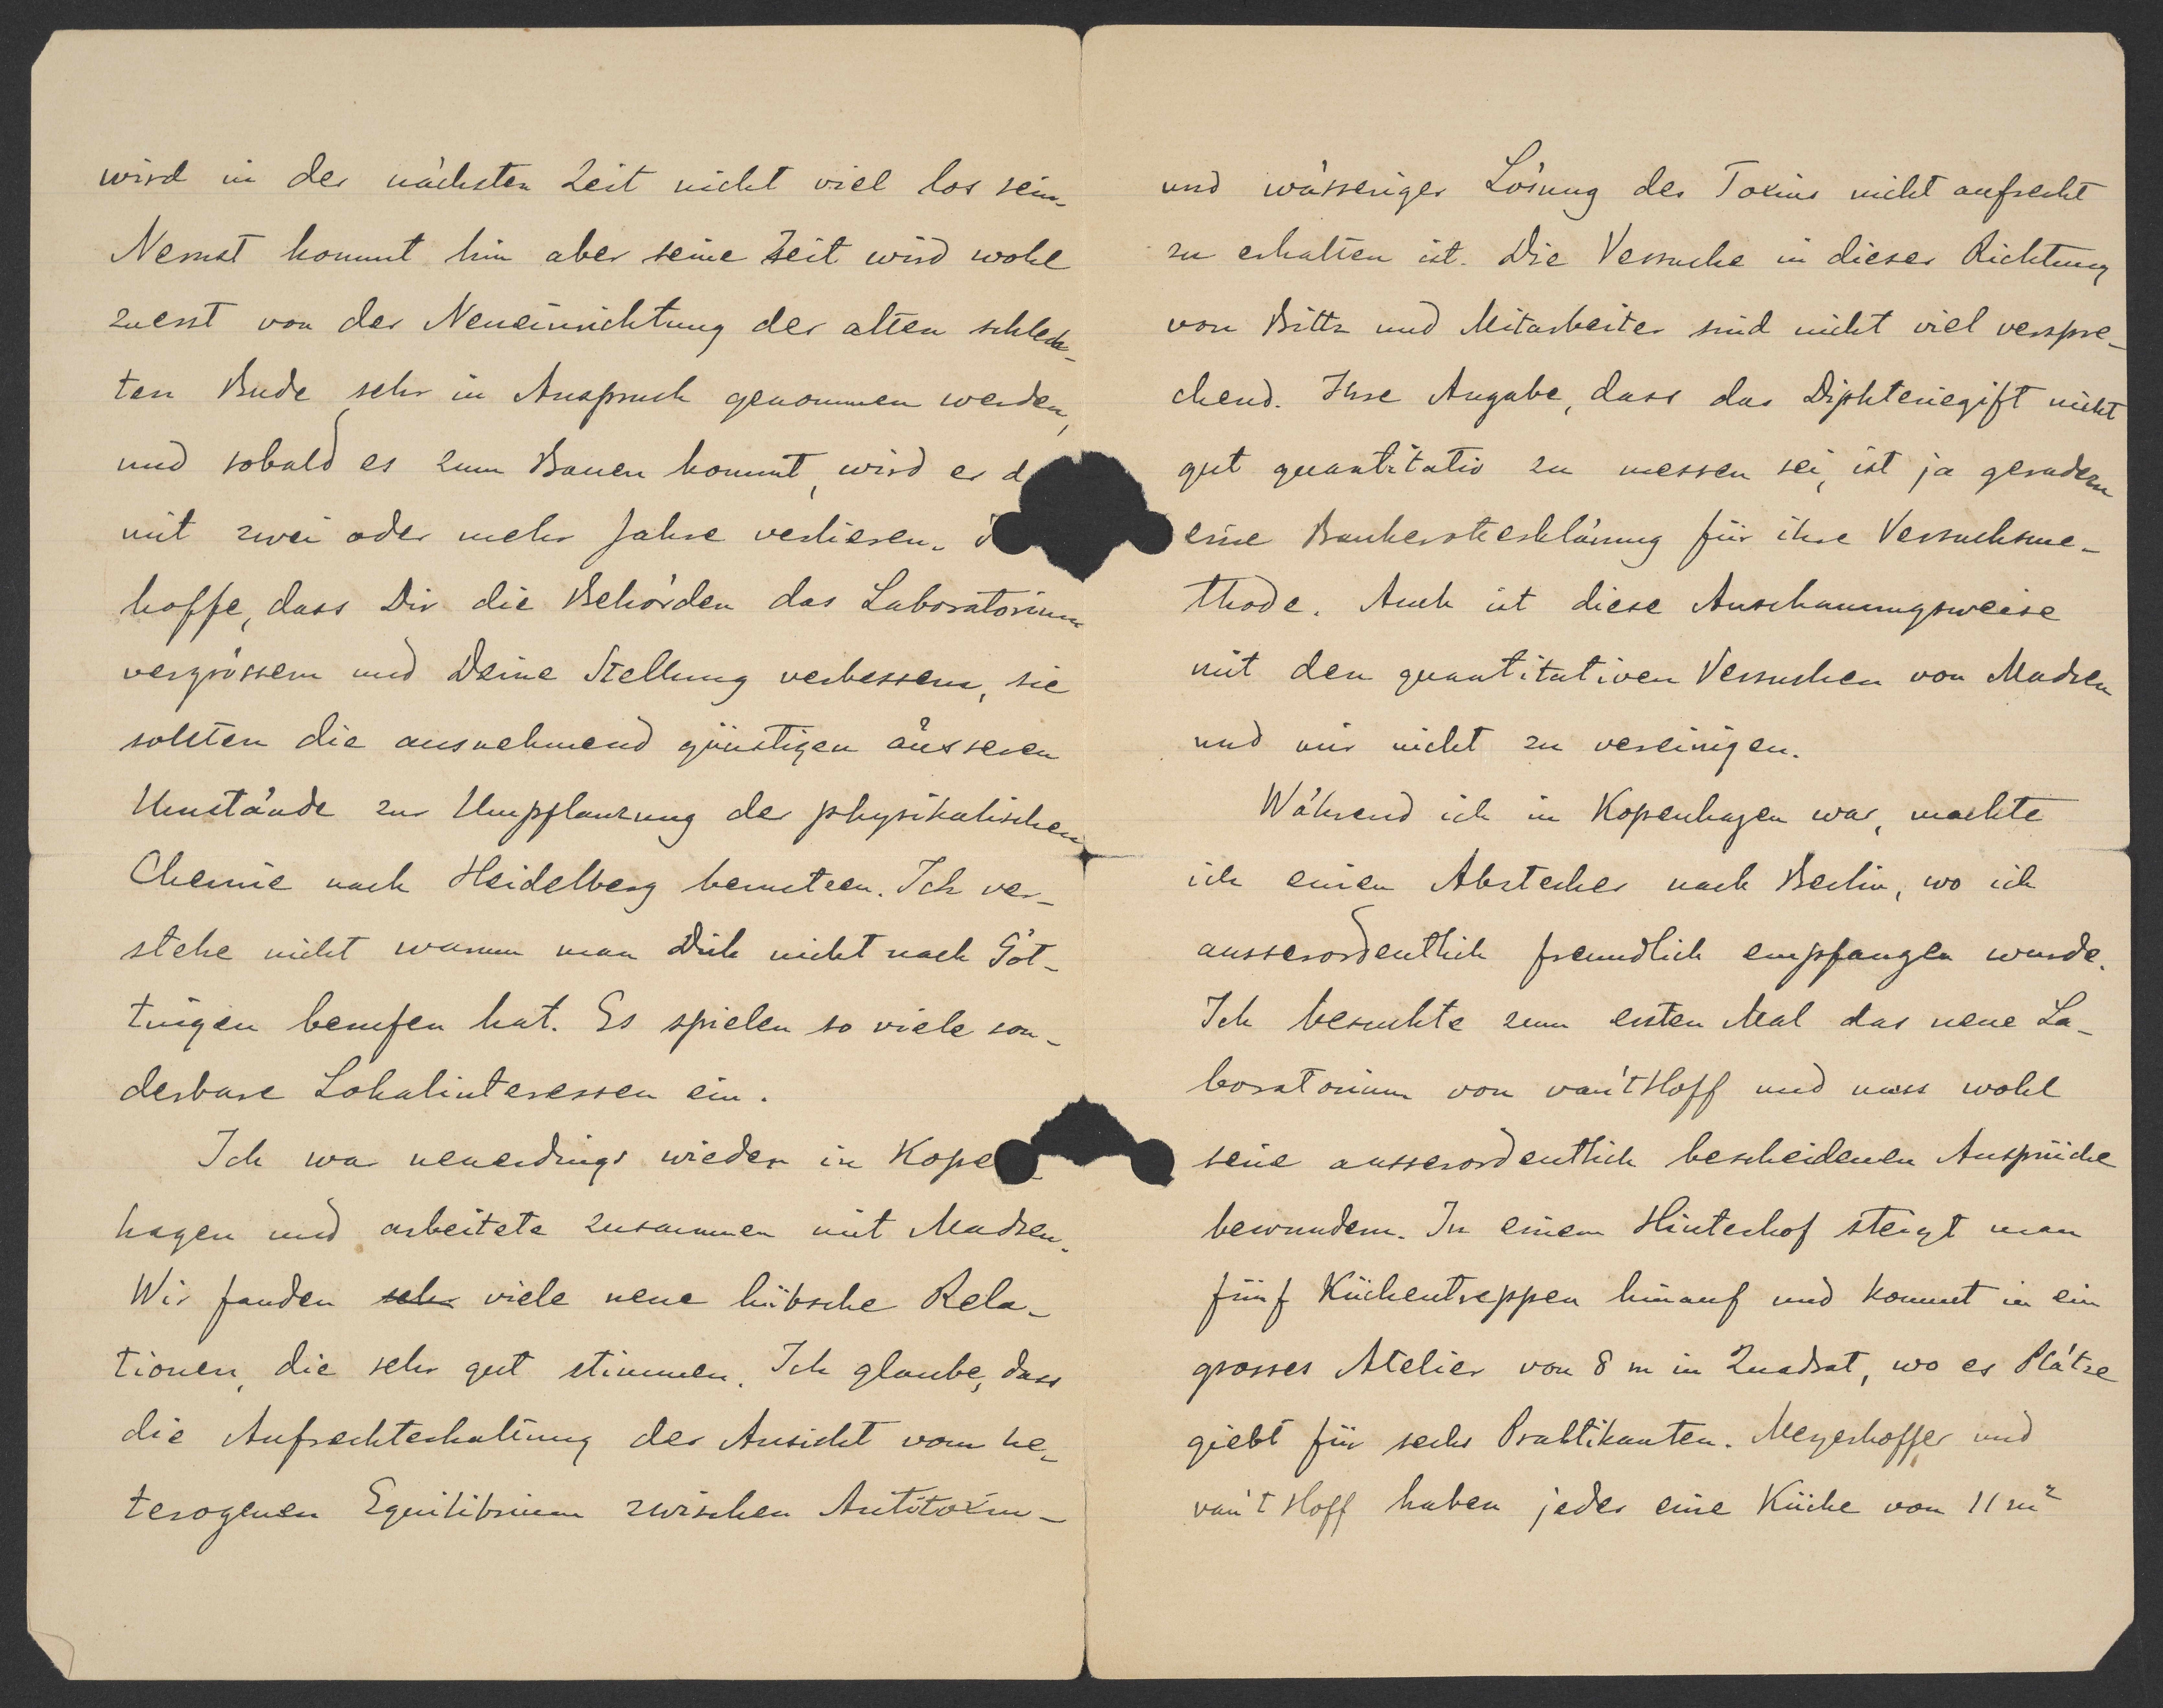 wird in der nächsten Zeit nicht viel los sein.
Nernst kommt hin aber seine Zeit wird wohl
zuerst von der Neueinrichtung der alten schlech-
ten Bude sehr in Anspruch genommen werden,
und sobald es zum Bauen kommt, wird er d
mit zwei oder mehr Jahre verlieren.
hoffe, dass Dir die Behörden das Laboratorium
vergrössern und Deine Stellung verbessern, sie
sollten die ausnehmend günstigen äusseren
Umstände zur Umpflanzung der physikalischen
Chemie nach Heidelberg benutzen. Ich ver-
stehe nicht warum man Dich nicht nach Göt-
tingen berufen hat. Es spielen so viele son-
derbare Lokalinteressen ein.
Ich war neuerdings wieder in Kope
hagen und arbeitete zusammen mit Madsen.
Wir fanden sehr viele neue hübsche Rela-
tionen, die sehr gut stimmen. Ich glaube, dass
die Aufrechterhaltung der Ansicht vom he-
terogenen Equilibrium zwischen Antitoxin-
und wässeriger Lösung des Toxins nicht aufrecht
zu erhalten ist. Die Versuche in dieser Richtung
von Biltz und Mitarbeiter sind nicht viel verspre-
chend. Ihre Angabe, dass das Diphteriegift nicht
gut quantitativ zu messen sei, ist ja geradezu
eine Bankerotterklärung für ihre Versuchsme-
thode. Auch ist diese Anschauungsweise
mit den quantitativen Versuchen von Madsen
und mir nicht zu vereinigen.
Während ich in Kopenhagen war, machte
ich einen Abstecher nach Berlin, wo ich
ausserordentlich freundlich empfangen wurde.
Ich besuchte zum ersten Mal das neue La-
boratorium von van't Hoff und muss wohl
seine ausserordentlich bescheidenen Ansprüche
bewundern. In einem Hinterhof steigt man
fünf Küchentreppen hinauf und kommt in ein
grosses Atelier von 8 m in Quadrat, wo es Plätze
giebt für sechs Praktikanten. Meyerhoffer und
van't Hoff haben jeder eine Küche von 11 m²